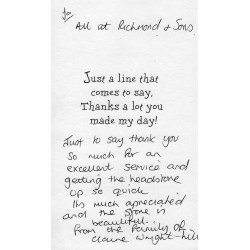 To
All at Richmond & Sons
Just a line that
comes to say,
Thanks a lot you
made my day!
Just to say thank you
So much for an
excellent service and
getting the headstone
up so quick
Its much appreciated
and the stone is
beautiful..
From the family of
Claire Wright-